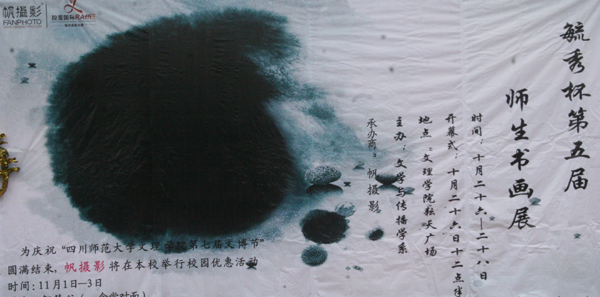 帆攝影
FANPHOTO
毓秀杯第五届
师生书画展
时间：十月二十六—二十八日
开幕式：十月二十六日十二点半
地点：文理学院耘天广场
主办：文学与传播学系
承办商：帆攝影
为庆祝“四川师范大学文理学院第七届文博节”
圆满结束，帆攝影将在本校举行校园优惠活动
时间：11月1日—3日